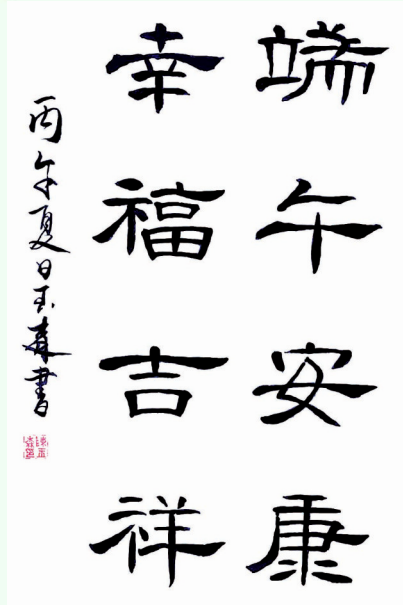 端午安康
幸福吉祥
丙午夏日玉森書